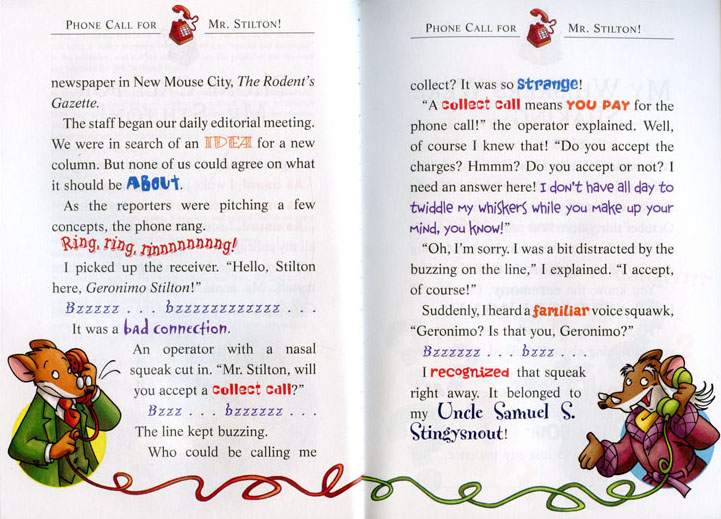 PHONE CALL FOR MR. STILTON!
newspaper in New Mouse City, The Rodent's
Gazette.
The staff began our daily editorial meeting.
We were in search of an IDEA for a new
column. But none of us could agree on what
it should be ABOUT.
As the reporters were pitching a few
concepts, the phone rang.
Ring, ring, rinnnnnnnng!
I picked up the receiver. “Hello, Stilton
here, Geronimo Stilton!”
Bzzzzz . . . bzzzzzzzzzzzz . . .
It was a bad connection.
An operator with a nasal
squeak cut in. “Mr. Stilton, will
you accept a collect call?”
Bzzz . . . bzzzzzz . . .
The line kept buzzing.
Who could be calling me
PHONE CALL FOR MR. STILTON!
collect? It was so strange!
“A collect call means YOU PAY for the
phone call!” the operator explained. Well,
of course I knew that! “Do you accept the
charges? Hmmm? Do you accept or not? I
need an answer here! I don't have all day to
twiddle my whiskers while you make up your
mind, you know!”
“Oh, I'm sorry. I was a bit distracted by the
buzzing on the line,” I explained. “I accept,
of course!”
Suddenly, I heard a familiar voice squawk,
“Geronimo? Is that you, Geronimo?”
Bzzzzzzz . . . bzzz . . .
I recognized that squeak
right away. It belonged to
my Uncle Samuel S.
Stingysnout!